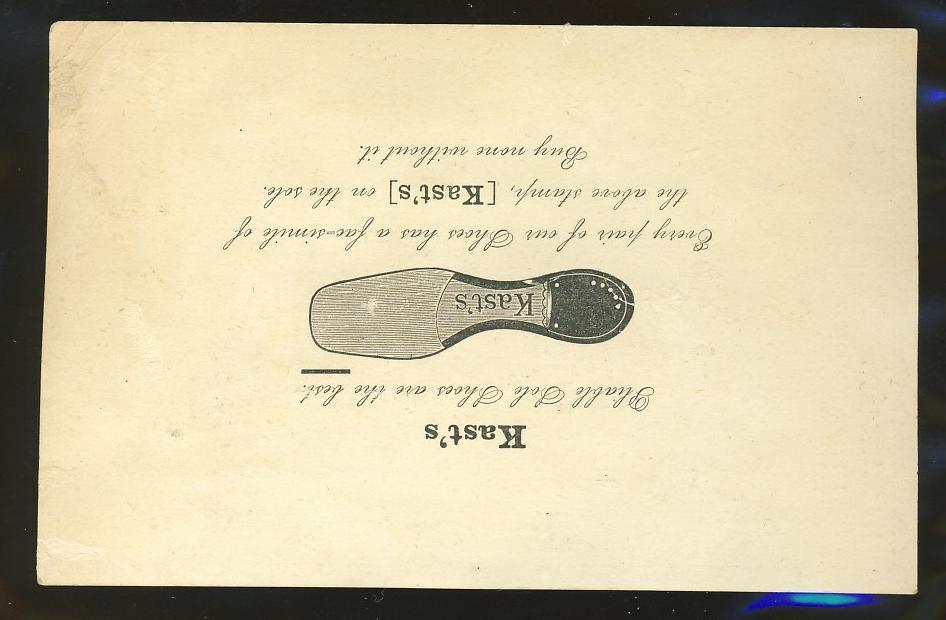 Kast's
Pliable Sole Shoes are the best.
Kast's
Every pair of our Shoes has a fac-simile of
the above stamp, [Kast's] on the sole.
Buy none without it.